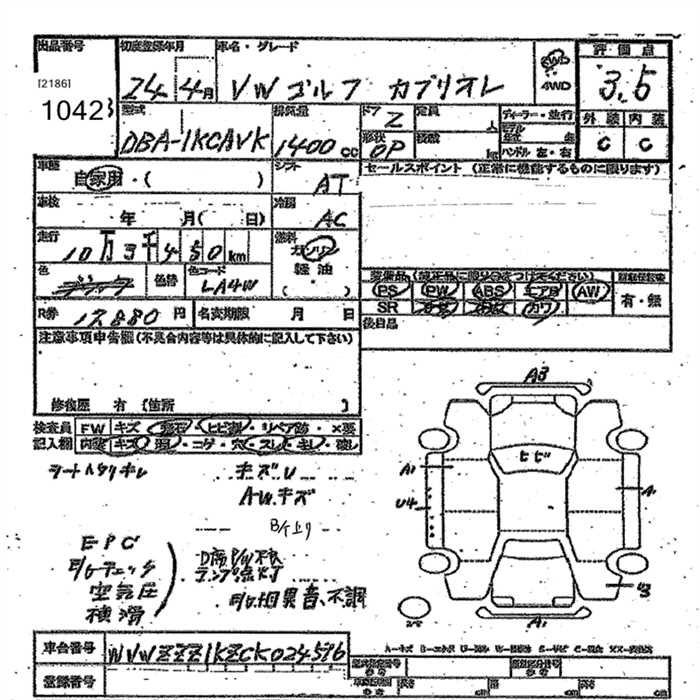 出品番号 初度登録年月 車名・グレード 評価点
[2186]
10423
24 4月 VW ゴルフ カブリオレ 2WD 4WD 3.5
型式 排気量 ドア 定員 ディーラー・並行 外装 内装
DBA-1KCAVK 1400cc 2 人
形状 OP 積載 kg モデル年式 年 ハンドル 左・右 C C
車歴 自家用・( ) シフト AT セールスポイント (正常に機能するものに限ります)
車検 年 月( 日) 冷房 AC
走行 10万3千450km 燃料 ガソリン 軽油 ( )
色 ブラック 色替 色コード LA4W
装備品 (純正品に限り○をつけてください)
PS PW ABS エアB AW 有・無
SR カワ
R券 12880円 名変期限 月 日 後日品
注意事項申告欄(不具合内容等は具体的に記入して下さい)
修復歴 有 [箇所 ]
検査員 FW キズ・飛石・ヒビ割・リペア跡・×要
記入欄 内装 キズ・汚れ・コゲ・穴・スレ・キレ・破レ
キズU
A.W.キズ
EPC
E/gチェック
空気圧
横滑
D席P/W不良
ランプ点灯
異音、不調
A3
ヒビ
A1
U4
A1
車台番号 WVWZZZ1KZCK024596
登録番号